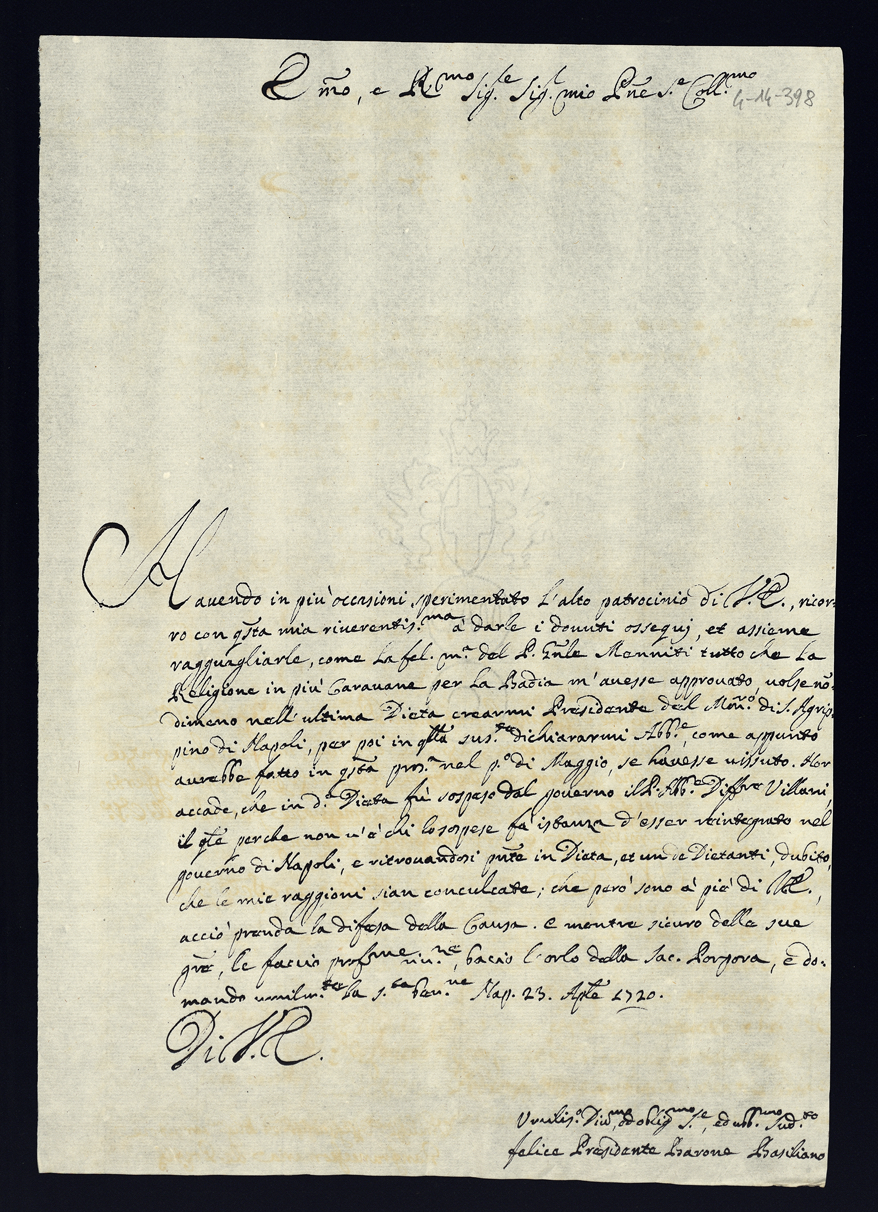 Em̃o, e R.mo Sig.re Sig.r mio Pñe S.e Coll.mo
4-14-398
Havendo in più occasioni sperimentato l'alto patrocinio di V.E., ricor-
ro con q̃sta mia riverentis.ma à darle i dovuti ossequj, et assieme
ragguagliarle, come la fel. m.a del P. Gñle Menniti tutto che la
Religione in più Caravane per la Badia m'avesse approvato, volse nõ
dimeno nell'ultima Dieta crearmi Presidente del Mon.ro di S. Agrip
pino di Napoli, per poi in q̃lla sus.te dichiararmi Abb.e, come appunto
avrebbe fatto in q̃sta pros.a nel p.o di Maggio, se havesse vissuto. Hor
accade, che in d.a Dieta fù sospeso dal governo il P. Abb.e Villani,
il q̃le perche non v'è chi lo sospese fà istanza d'esser reintegrato nel
governo di Napoli, e ritrovandosi p̃nte in Dieta, et un de Dietanti, dubito,
che le mie raggioni sian conculcate; che però sono à piè di V.E.,
acciò prenda la difesa della Causa. e mentre sicuro della sue
gr̃e, le faccio prof.me riv.ne, bacio l'orlo della Sac. Porpora, e do-
mando umilm.te la s.ta ben.ne Nap. 23. Ap̃le 1720.
Di V.E.
Umilis.o Div.mo ed oblig.mo S.e, ed ubb.mo Sud.to
felice Presidente Barone Basiliano